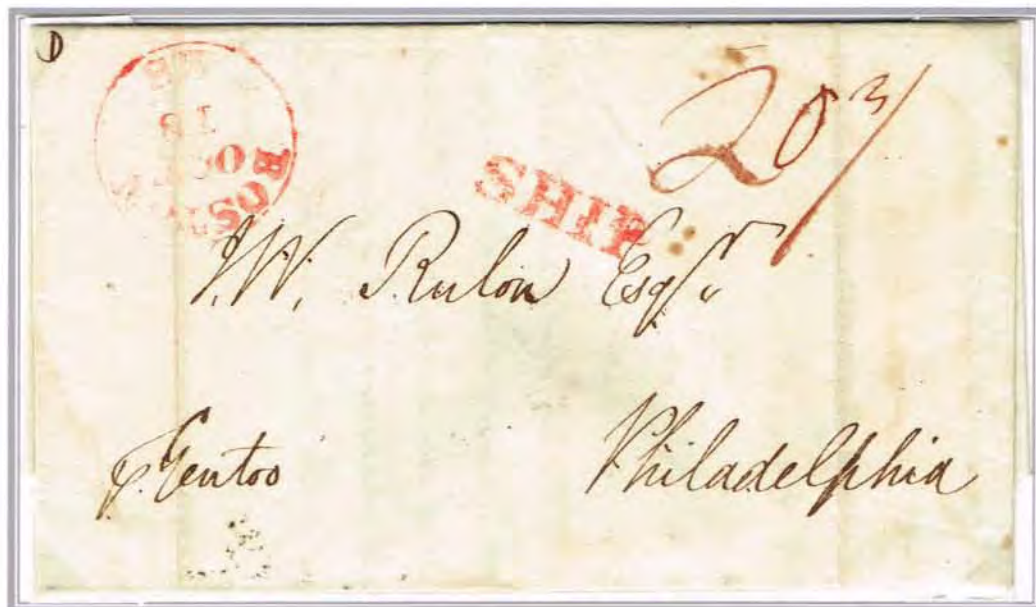 D
18
SHIP
20 3/4
J.W. Rulon Esqr
p. Gentoo
Philadelphia